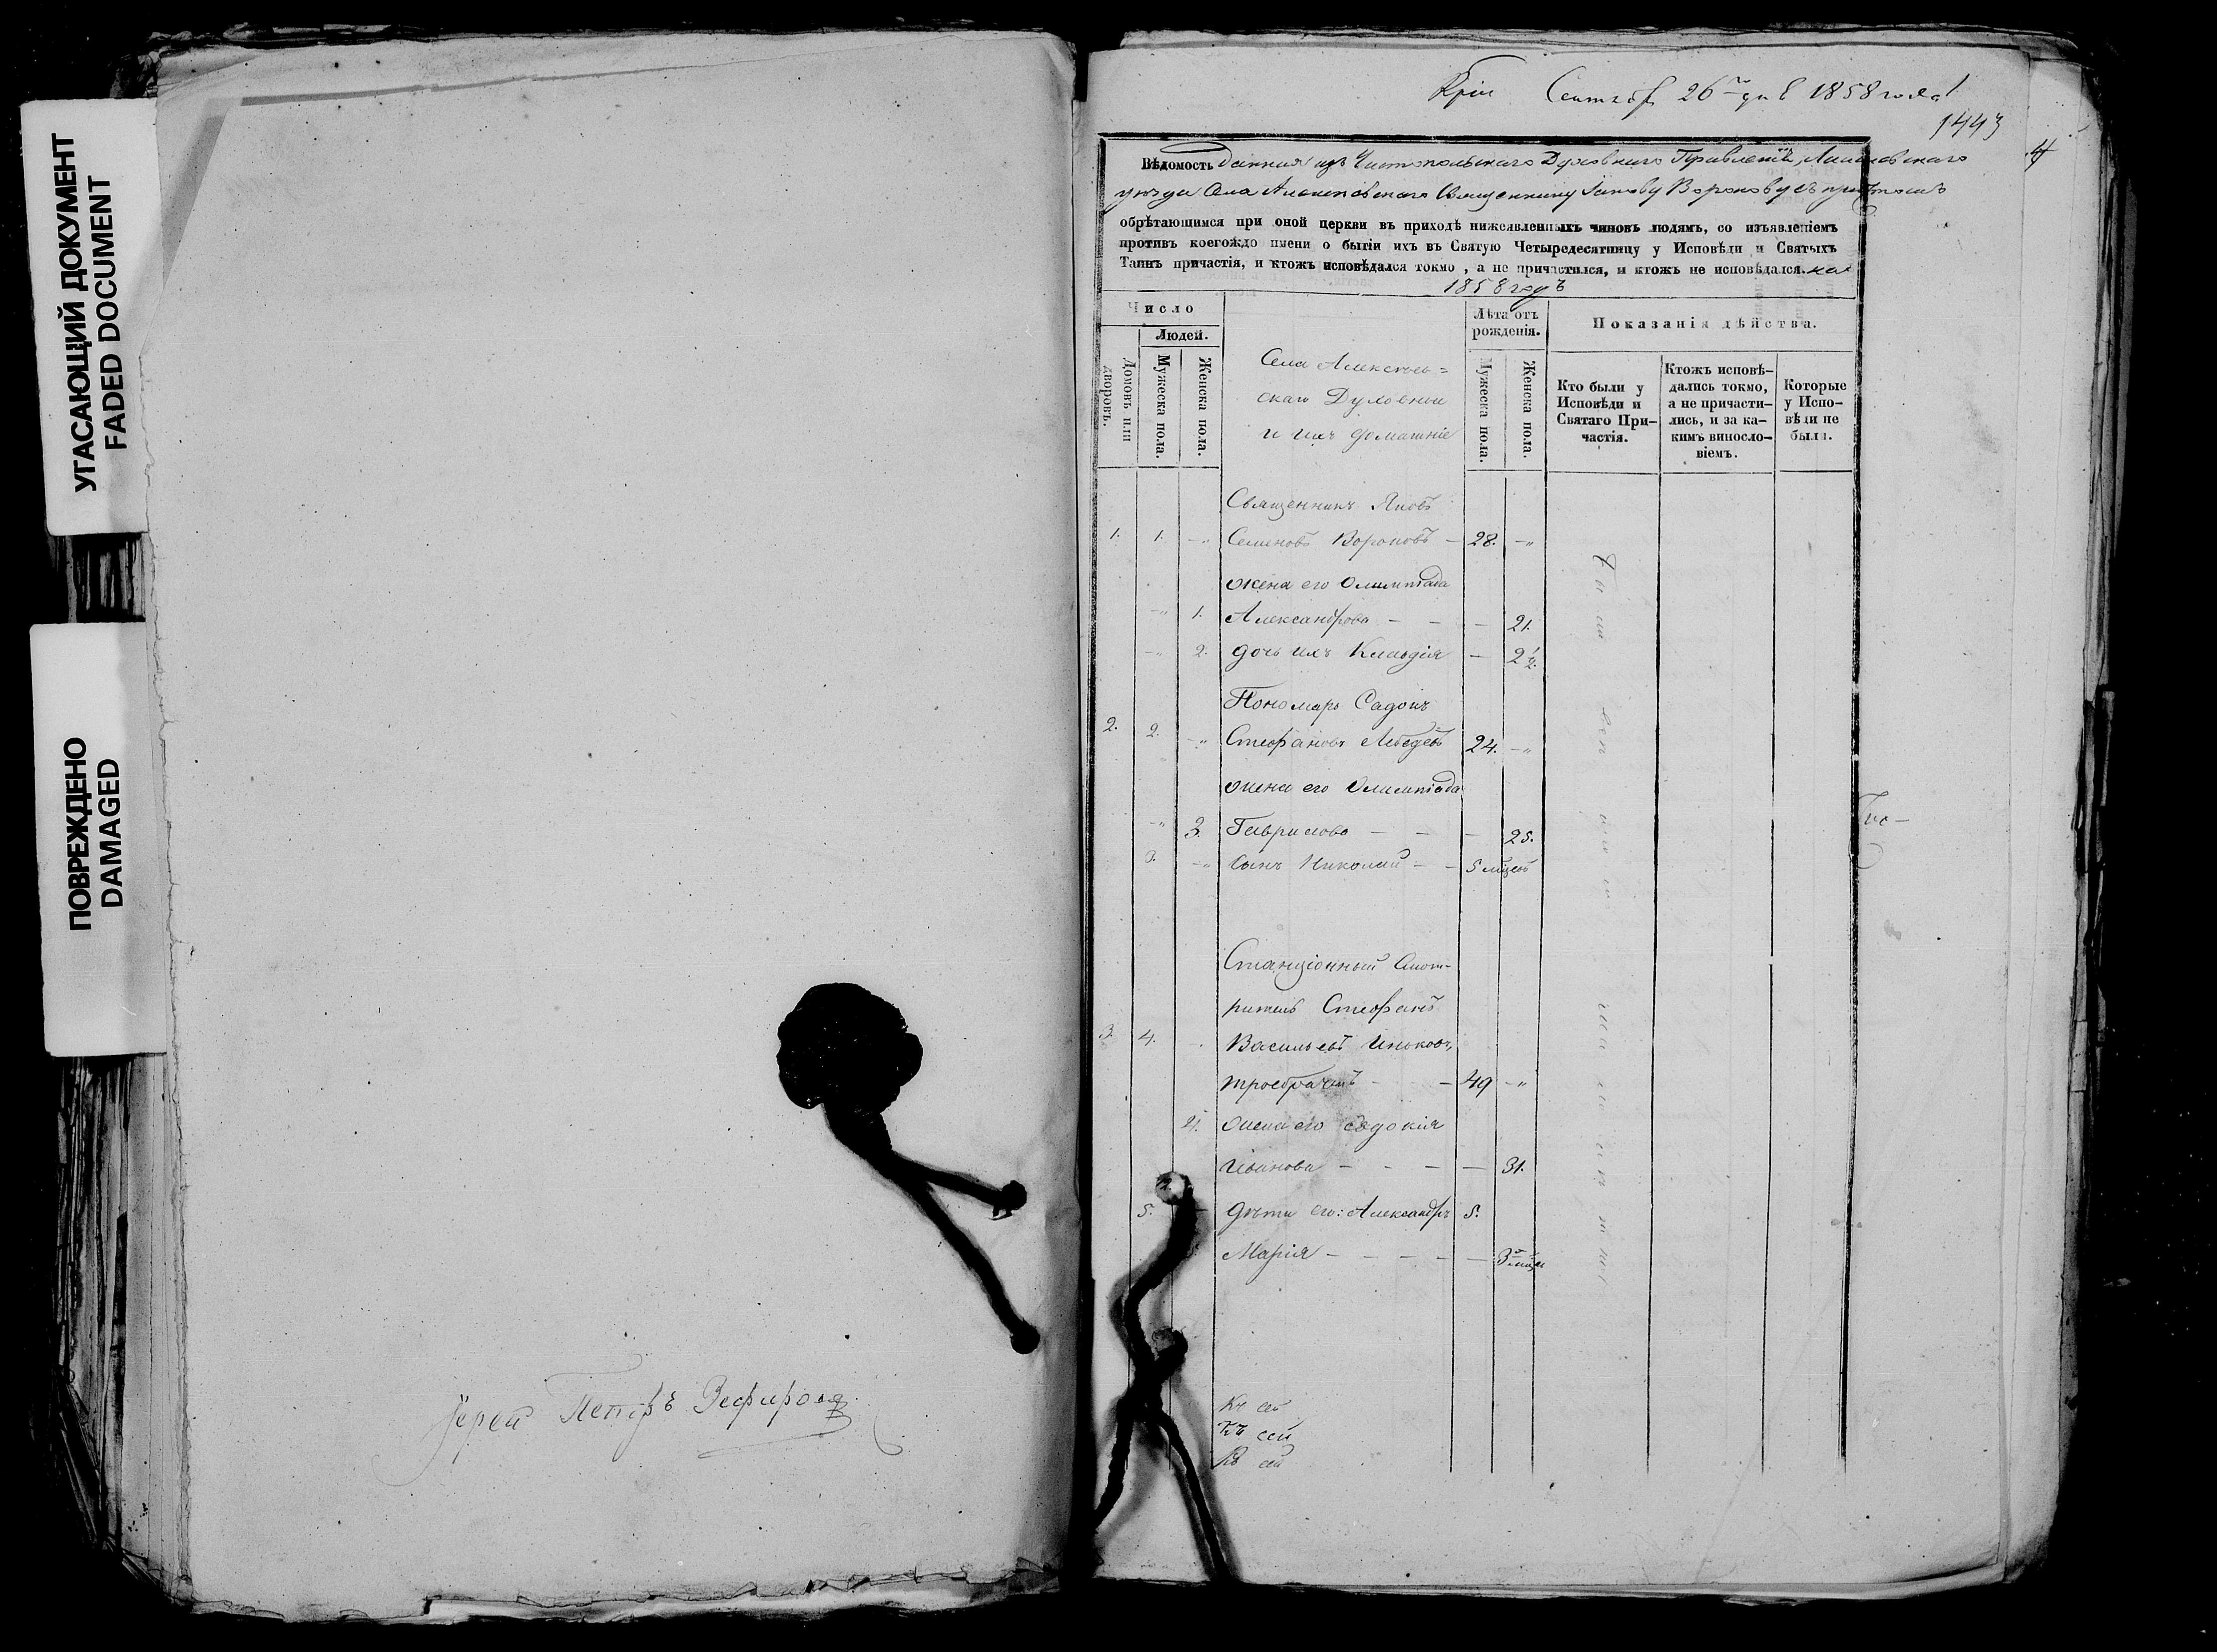 УГАСАЮЩИЙ ДОКУМЕНТ
FADED DOCUMENT
ПОВРЕЖДЕНО
DAMAGED
Іерей Петръ Зефировъ
Сентяб 26 1858 года
1443
4
Вѣдомость данная изъ Чистопольскаго Духовнаго Правленія, Лаишевскаго
уѣзда Села Алексѣевскаго Священнику Іакову Воронову съ причтомъ
обрѣтающимся при оной церкви въ приходѣ нижеявленныхъ чиновъ людямъ, со изъявленіемъ
противъ коегождо имени о бытіи ихъ въ Святую Четыредесятницу у Исповѣди и Святыхъ
Таинъ причастія, и ктожъ исповѣдался токмо, а не причастился, и ктожъ не исповѣдался. на
1858 годъ
Число
Людей.
Домовъ или дворовъ.
Мужеска пола.
Женска пола.
Села Алексѣев=
скаго Духовные
и ихъ домашніе
Лѣта отъ
рожденія.
Мужеска пола.
Женска пола.
Показанія дѣйства.
Кто были у
Исповѣди и
Святаго При-
частія.
Ктожъ исповѣ-
дались токмо,
а не причасти-
лись, и за ка-
кимъ виносло-
віемъ.
Которые
у Испо-
вѣди не
были.
Священникъ Яковъ
1. 1. -„ Семеновъ Вороновъ - 28. -„
жена его Олимпіада
-„ 1. Александрова - - - 21.
-„ 2. дочь ихъ Клавдія - 2½.
Пономарь Садокъ
2. 2. -„ Стефановъ Лебедевъ 24. -„
жена его Олимпіада
-„ 3. Гаврилова - - - 25.
3. -„ сынъ Николай - - 5 мѣцевъ
Станціонный Смот-
ритель Стефанъ
3. 4. Васильевъ Иньковъ,
троебрачный - - 49 -„
4. жена его Евдокія
Иванова - - - - 31.
5. - дѣти его: Александръ 5.
Марія - - - - - 3 мѣца
Были
Къ сей
Къ сей
Къ сей